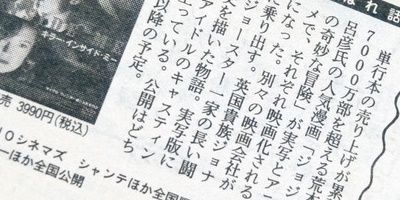 ばれ話
単行本の売り上げが累
7000万部を超える荒木
呂彦氏の人気漫画「ジョジョ
の奇妙な冒険」が実写とアニ
メで、それぞれ映画化される
になった。別々の映画会社が
に乗り出す。英国貴族ジョナ
ジョースター一家の長い闘
を描いた物語。実写版に
アイドルのキャスティン
立っている。公開はどち
以降の予定。
キラー・インサイド・ミー
売 3990円(税込)
Oシネマズ シャンテほか全国
ーほか全国公開